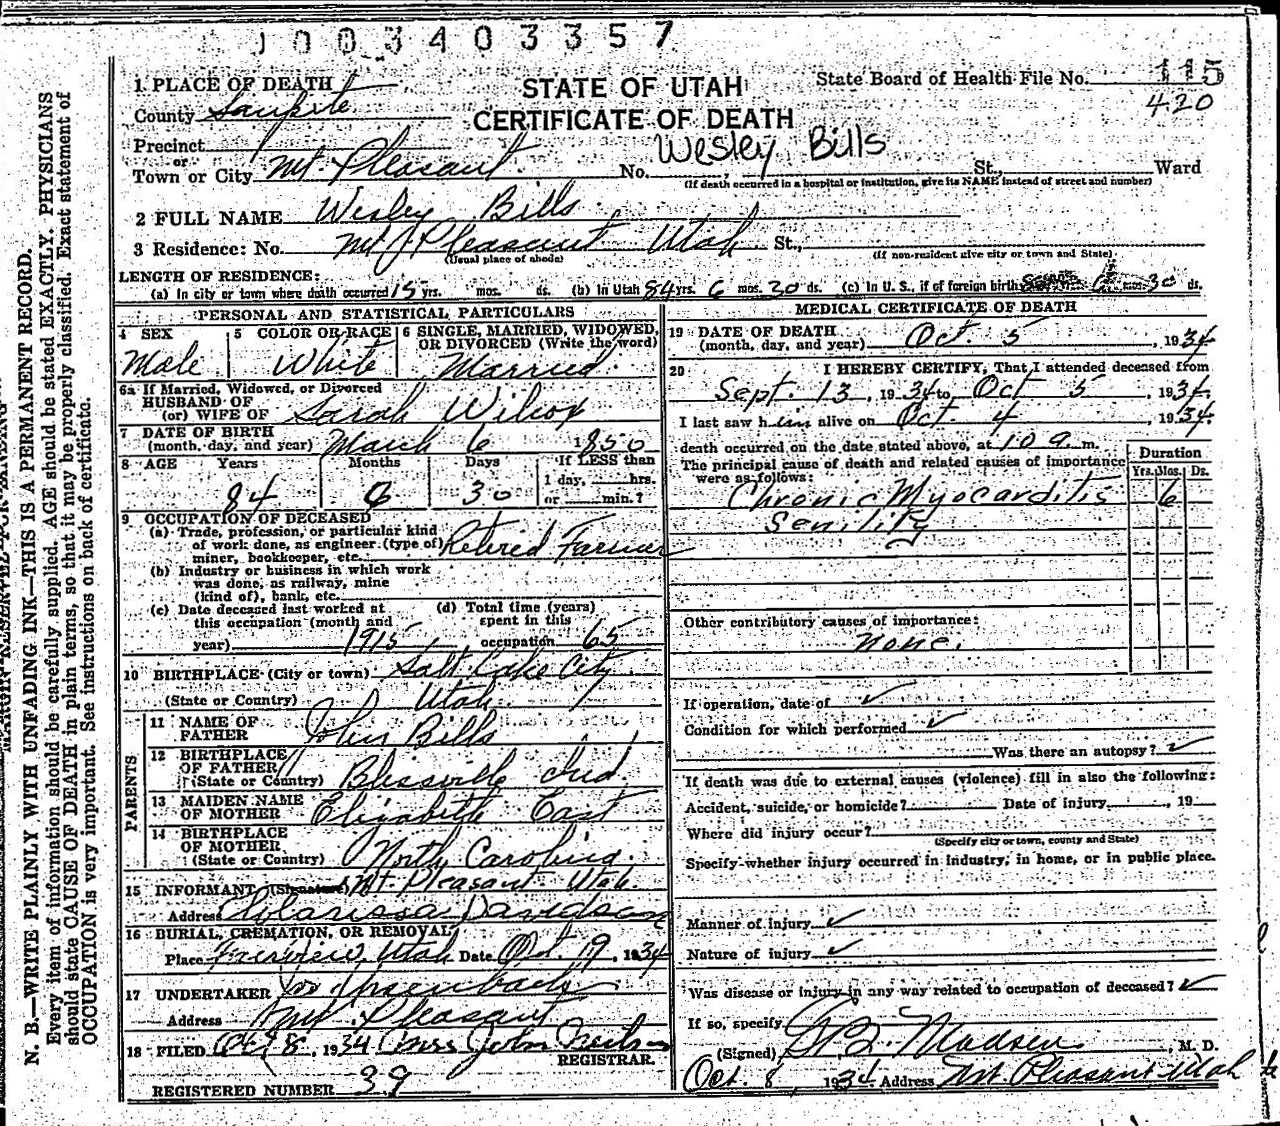 1003403357
STATE OF UTAH
CERTIFICATE OF DEATH
State Board of Health File No. 115
420
1. PLACE OF DEATH
County Sanpete
Precinct
or
Town or City Mt. Pleasant No. St., Ward
Wesley Bills
(If death occurred in a hospital or institution, give its NAME instead of street and number)
2 FULL NAME Wesley Bills
3 Residence: No. Mt. Pleasant Utah St.,
(Usual place of abode) (If non-resident give city or town and State)
LENGTH OF RESIDENCE:
(a) In city or town where death occurred 15 yrs. mos. ds. (b) In Utah 84 yrs. 6 mos. 30 ds. (c) In U. S., if of foreign birth 6 mos. 30 ds.
PERSONAL AND STATISTICAL PARTICULARS
4 SEX
Male
5 COLOR OR RACE
White
6 SINGLE, MARRIED, WIDOWED,
OR DIVORCED (Write the word)
Married
6a If Married, Widowed, or Divorced
HUSBAND OF
(or) WIFE OF Sarah Wilcox
7 DATE OF BIRTH
(month, day, and year) March 6 1850
8 AGE Years Months Days If LESS than
1 day, hrs.
84 6 30 or min.?
9 OCCUPATION OF DECEASED
(a) Trade, profession, or particular kind
of work done, as engineer (type of)
miner, bookkeeper, etc. Retired Farmer
(b) Industry or business in which work
was done, as railway, mine
(kind of), bank, etc.
(c) Date deceased last worked at
this occupation (month and
year) 1915
(d) Total time (years)
spent in this
occupation 65
10 BIRTHPLACE (City or town) Salt Lake City
(State or Country) Utah
PARENTS
11 NAME OF
FATHER John Bills
12 BIRTHPLACE
OF FATHER
(State or Country) Blissville Ind
13 MAIDEN NAME
OF MOTHER Elizabeth East
14 BIRTHPLACE
OF MOTHER
(State or Country) North Carolina.
15 INFORMANT (Signature) Mt. Pleasant Utah.
Address Clarissa Davidson
16 BURIAL, CREMATION, OR REMOVAL
Place Fairview, Utah Date Oct. 9, 1934
17 UNDERTAKER Ursenbach
Address Mt. Pleasant
18 FILED Oct 8, 1934 Mrs John
REGISTRAR.
REGISTERED NUMBER 39
MEDICAL CERTIFICATE OF DEATH
19 DATE OF DEATH
(month, day, and year) Oct. 5, 1934
20 I HEREBY CERTIFY, That I attended deceased from
Sept. 13, 1934 to Oct 5, 1934.
I last saw him alive on Oct. 4, 1934.
death occurred on the date stated above, at 10 a. m.
The principal cause of death and related causes of importance
were as follows:
Duration
Yrs. Mos. Ds.
Chronic Myocarditis 6
Senility
Other contributory causes of importance:
none.
If operation, date of ✓
Condition for which performed ✓
Was there an autopsy? ✓
If death was due to external causes (violence) fill in also the following:
Accident, suicide, or homicide? Date of injury , 19
Where did injury occur?
(Specify city or town, county and State)
Specify whether injury occurred in industry, in home, or in public place.
Manner of injury ✓
Nature of injury ✓
Was disease or injury in any way related to occupation of deceased? ✓
If so, specify
(Signed) Madsen, M. D.
Oct. 8, 1934 Address Mt. Pleasant Utah
N. B.—WRITE PLAINLY WITH UNFADING INK—THIS IS A PERMANENT RECORD.
Every item of information should be carefully supplied. AGE should be stated EXACTLY. PHYSICIANS
should state CAUSE OF DEATH in plain terms, so that it may be properly classified. Exact statement of
OCCUPATION is very important. See instructions on back of certificate.